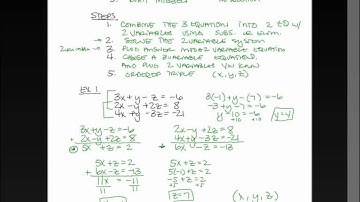 STEPS
1. COMBINE THE 3 EQUATION INTO 2 EQ W/
2 VARIABLES USING SUBS. OR ELIM.
→ 2. SOLVE THE 2 VARIABLE SYSTEM
3. PLUG ANSWER INTO 2 VARIABLE EQUATION
4. CHOOSE A 3 VARIABLE EQUATION
AND PLUG 2 VARIABLES YOU KNOW
5. ORDERED TRIPLE (x, y, z)
EX 1
3x + y - z = -6
2x - y + 2z = 8
4x + y - 3z = -21
3(-1) + y - (7) = -6
-3 + y - 7 = -6
y - 10 = -6
+10 +10
y = 4
3x + y - z = -6
+ 2x - y + 2z = 8
5x + z = 2
2x - y + 2z = 8
+ 4x + y - 3z = -21
6x - z = -13
5x + z = 2
+ 6x - z = -13
11x = -11
11 11
5x + z = 2
5(-1) + z = 2
-5 + z = 2
+5 +5
z = 7
(x, y, z)